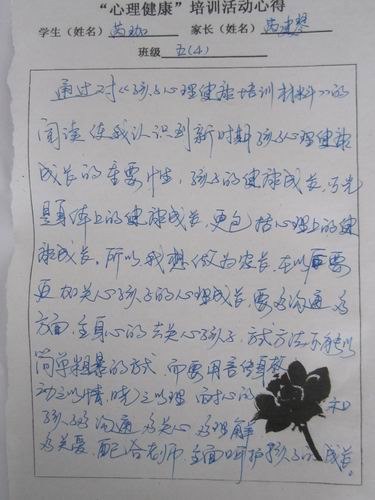 “心理健康”培训活动心得
学生（姓名） 家长（姓名）
班级 五(4)
通过对《孩子心理健康培训材料》的
阅读使我认识到新时期孩子心理健康
成长的重要性，孩子的健康成长，不光
是身体上的健康成长，更包括心理上的健
康成长。所以，我想做为家长，在以后要
更加关心孩子的心理成长，要多沟通多
方面，全身心的去关心孩子，方式方法不能以
简单粗暴的方式，而要用言传身教
动之以情，晓之以理 耐心的和
孩子多沟通 多关心 多理解
多关爱，配合老师，全面呵护孩子的成长。